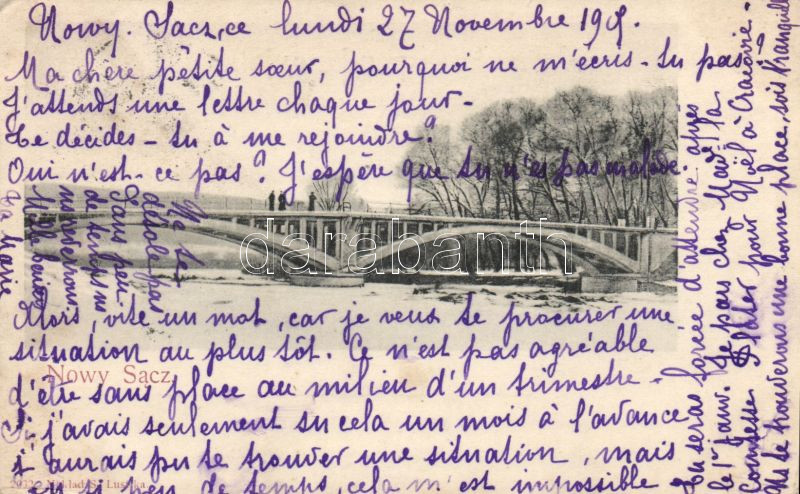 Nowy. Sacz, ce lundi 27 Novembre 19
Ma chère petite sœur, pourquoi ne m'écris-tu pas?
J'attends une lettre chaque jour-
Te décides-tu à me rejoindre?
Oui n'est-ce pas? J'espère que tu n'es pas malade.
Alors, vite un mot, car je veux te procurer une
situation au plus tôt. Ce n'est pas agréable
d'être sans place au milieu d'un trimestre-
Si j'avais seulement su cela un mois à l'avance
j'aurais pu te trouver une situation, mais
en si peu de temps, cela m'est impossible
Tu seras forcée d'attendre après
le 1er janv. Je pars chez Mad. la
Comtesse pour Noël à Cracovie.
Ns te trouverons une bonne place, sois tranquille
Ne te
désole pas
Dans peu
de temps ns
ns verrons
Mille baisers
Ta Marie
Nowy Sącz
darabanth